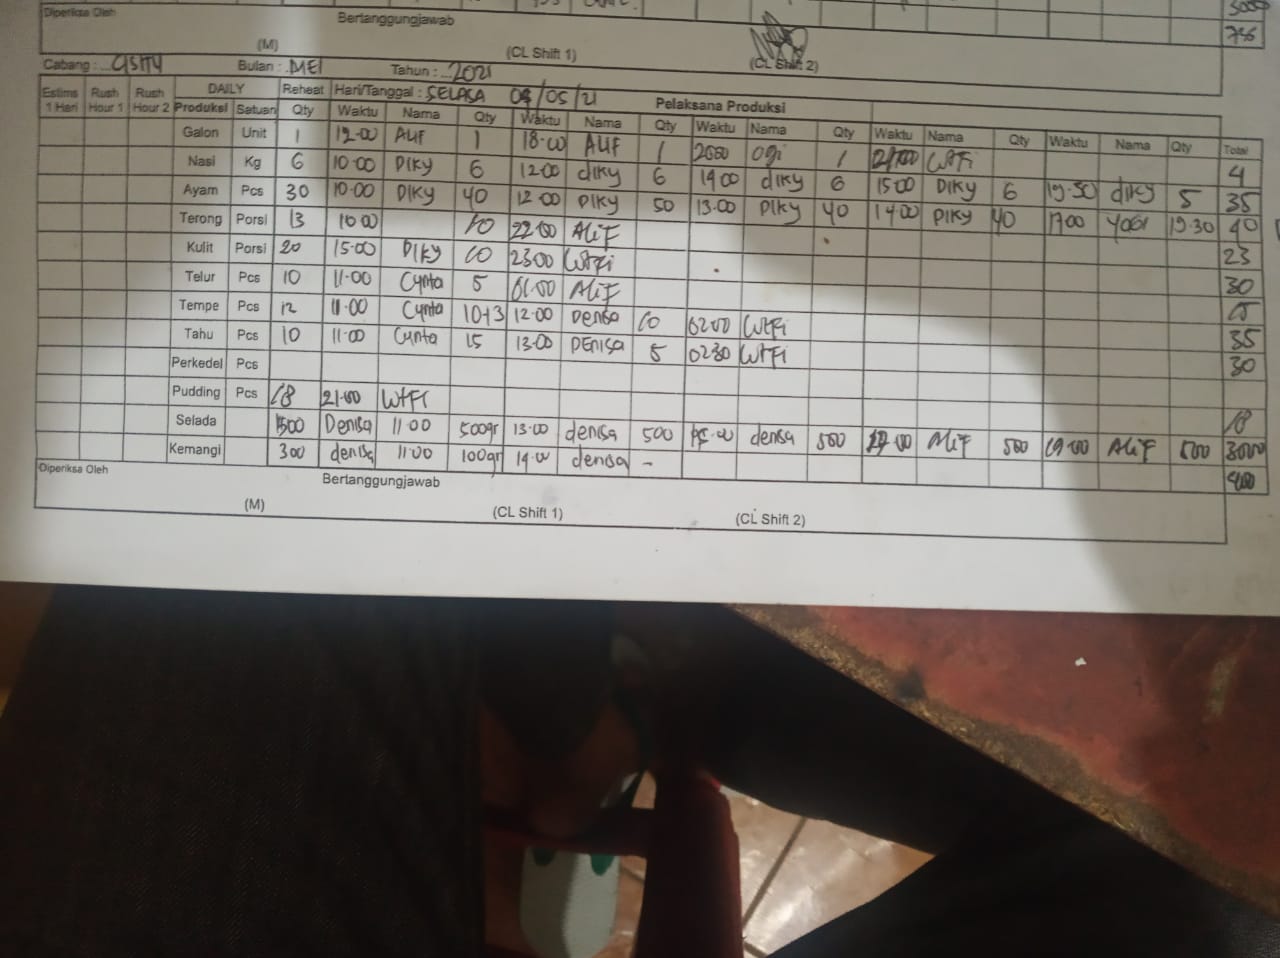 3000
Diperiksa Oleh Bertanggungjawab
(M) (CL Shift 1) (CL Shift 2)
Cabang : Bulan : MEI Tahun : 2021
Estims 1 Hari Rush Hour 1 Rush Hour 2 DAILY Reheat Hari/Tanggal : SELASA 04/05/21 Pelaksana Produksi
Produksi Satuan Qty Waktu Nama Qty Waktu Nama Qty Waktu Nama Qty Waktu Nama Qty Waktu Nama Qty Total
Galon Unit 1 12.00 1 18.00 1 Ogi 1 4
Nasi Kg 6 10.00 DIKY 6 12.00 diky 6 14.00 diky 6 15.00 DIKY 6 19.30 diky 5 35
Ayam Pcs 30 10.00 DIKY 40 12.00 DIKY 50 13.00 DIKY 40 14.00 DIKY 40 17.00 19.30
Terong Porsi 13 10.00 10 22.00 ALIF 23
Kulit Porsi 20 15.00 DIKY 10 23.00 30
Telur Pcs 10 11.00 Cynta 5 ALIF
Tempe Pcs 12 11.00 Cynta 10+3 12.00 Denisa 10 02.00 35
Tahu Pcs 10 11.00 Cynta 15 13.00 DENISA 5 02.30 30
Perkedel Pcs
Pudding Pcs 18 21.00 18
Selada 1500 Denisa 11.00 500gr 13.00 denisa 500 15.00 denisa 500 ALIF 500 19.00 ALIF 500 3000
Kemangi 300 denisa 11.00 100gr 14.00 denisa - 400
Diperiksa Oleh Bertanggungjawab
(M) (CL Shift 1) (CL Shift 2)